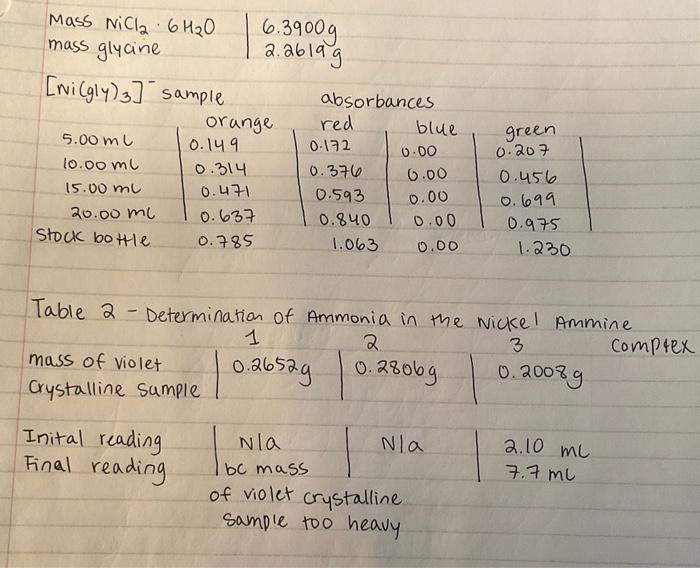 Mass NiCl2 · 6H2O 6.3900g
mass glycine 2.2619g
[Ni(gly)3]- sample absorbances
orange red blue green
5.00 ml 0.149 0.172 0.00 0.207
10.00 ml 0.314 0.376 0.00 0.456
15.00 ml 0.471 0.593 0.00 0.699
20.00 ml 0.637 0.840 0.00 0.975
Stock bottle 0.785 1.063 0.00 1.230
Table 2 - Determination of Ammonia in the Nickel Ammine Complex
1 2 3
mass of violet 0.2652g 0.2806g 0.2008g
Crystalline sample
Inital reading N/a N/a 2.10 ml
Final reading bc mass 7.7 ml
of violet crystalline
sample too heavy